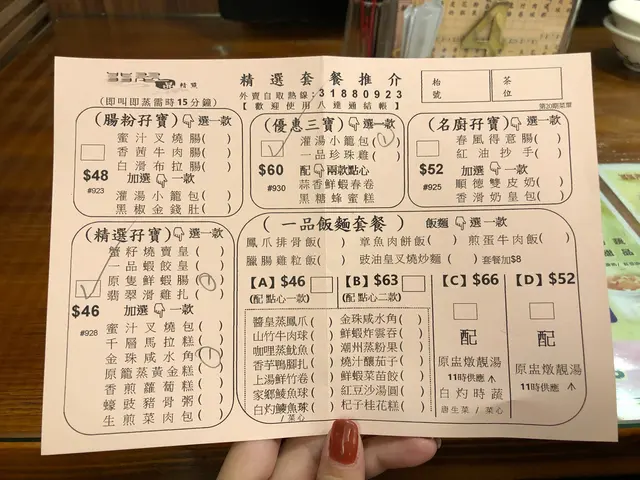 精選套餐推介
外賣自取熱線:31880923
(即叫即蒸需時15分鐘)
【歡迎使用八達通結帳】
枱號
茶位
第20期菜單
(腸粉孖寶) 選一款
蜜汁叉燒腸( )
香茜牛肉腸( )
白滑布拉腸( )
$48
#923
加選 一款
灌湯小籠包( )
黑椒金錢肚( )
(優惠三寶) 選一款
灌湯小籠包(1)
一品珍珠雞( )
$60
#930
配 兩款點心
蒜香鮮蝦春卷
黑糖蜂蜜糕
(名廚孖寶) 選一款
春風得意腸( )
紅油抄手( )
$52
#925
加選 一款
順德雙皮奶( )
香滑奶皇包( )
(精選孖寶) 選一款
蟹籽燒賣皇( )
一品蝦餃皇( )
原隻鮮蝦腸(1)
翡翠滑雞扎( )
$46
#928
加選 一款
蜜汁叉燒包( )
千層馬拉糕( )
金珠咸水角(1)
原籠蒸黃金糕( )
香煎蘿蔔糕( )
蠔豉豬骨粥( )
生煎菜肉包( )
(一品飯麵套餐) 飯麵 選一款
鳳爪排骨飯( ) 章魚肉餅飯( ) 煎蛋牛肉飯( )
臘腸雞粒飯( ) 豉油皇叉燒炒麵( ) 套餐加$8
【A】$46
(配 點心一款)
【B】$63
(配 點心二款)
醬皇蒸鳳爪( ) 金珠咸水角( )
山竹牛肉球( ) 鮮蝦炸雲吞( )
咖哩蒸魷魚( ) 潮州蒸粉果( )
香芋鴨腳扎( ) 燒汁釀茄子( )
上湯鮮竹卷( ) 鮮蝦菜苗餃( )
家鄉鯪魚球( ) 紅豆沙湯圓( )
白灼鯪魚球( ) 杞子桂花糕( )
/菜心
【C】$66
配
原盅燉靚湯
11時供應 ↑
白灼時蔬
唐生菜 / 菜心
【D】$52
配
原盅燉靚湯
11時供應 ↑